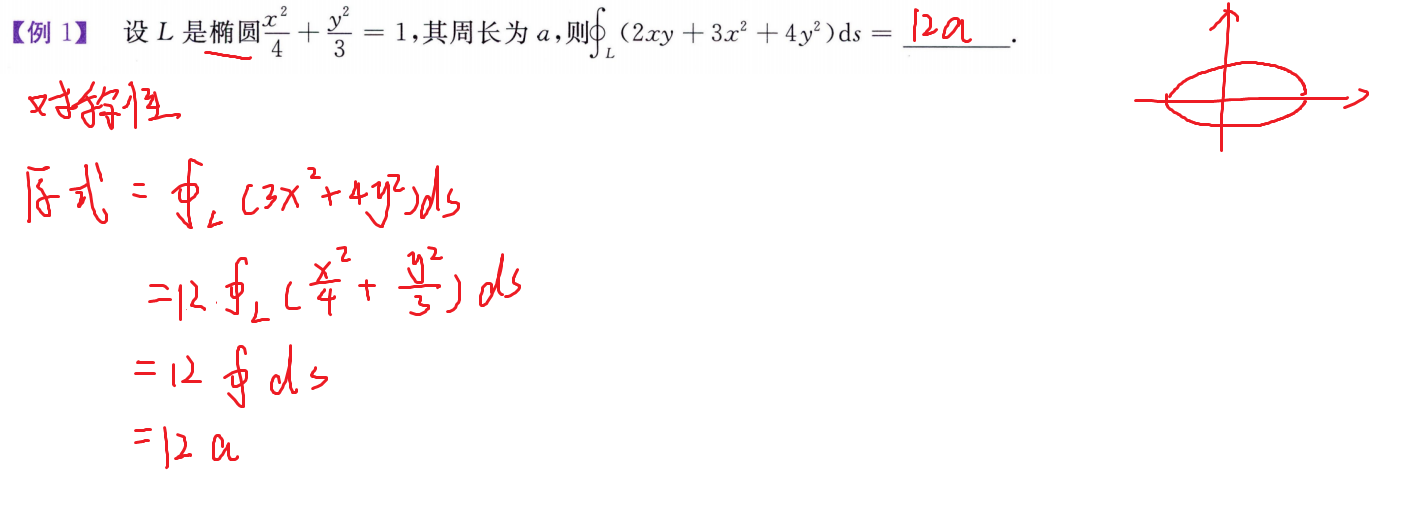 【例 1】 设 L 是椭圆 x²/4 + y²/3 = 1,其周长为 a,则∮_L (2xy + 3x² + 4y²)ds = 12a .
对称性
原式 = ∮_L (3x² + 4y²)ds
=12·∮_L (x²/4 + y²/3) ds
= 12 ∮ ds
= 12 a